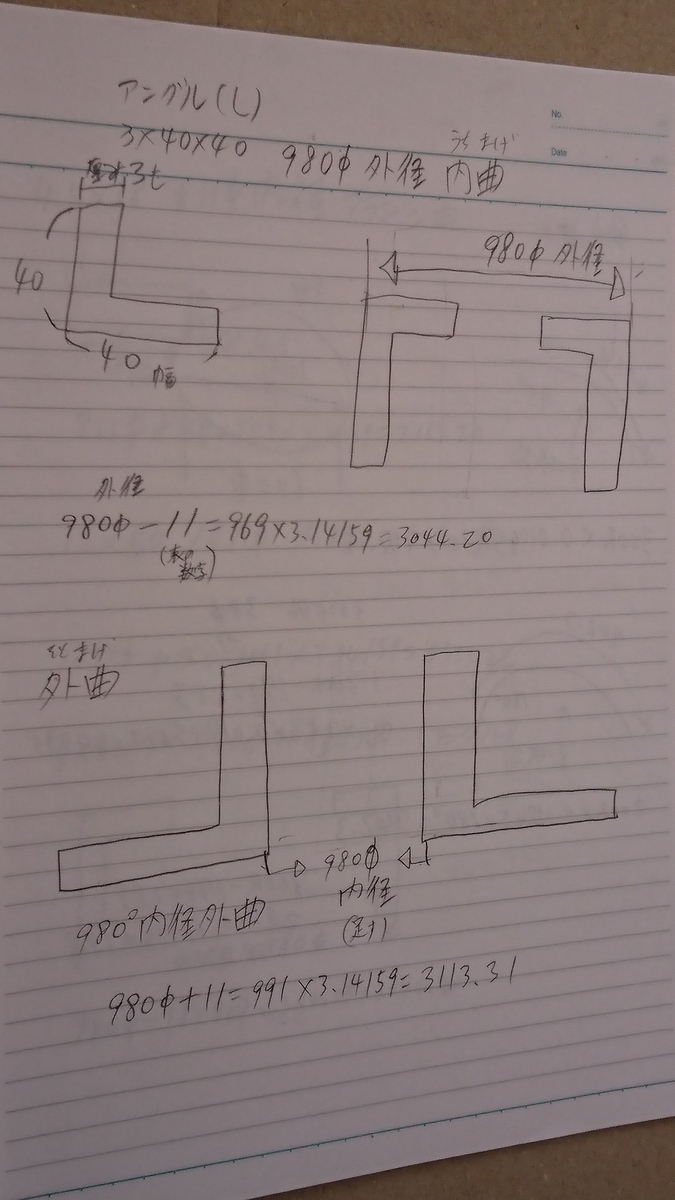 アングル(L)
No
3×40×40 980φ 外径 内曲
うちまげ
Date
厚み3t
40
40 幅
980φ 外径
外径
980φ-11=969×3.14159=3044.20
(末の
数字)
そとまげ
外曲
980φ
内径
980°内径外曲
980φ+11=991×3.14159=3113.31